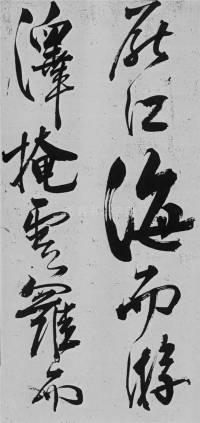 厭江海而游
澤掩雲羅而